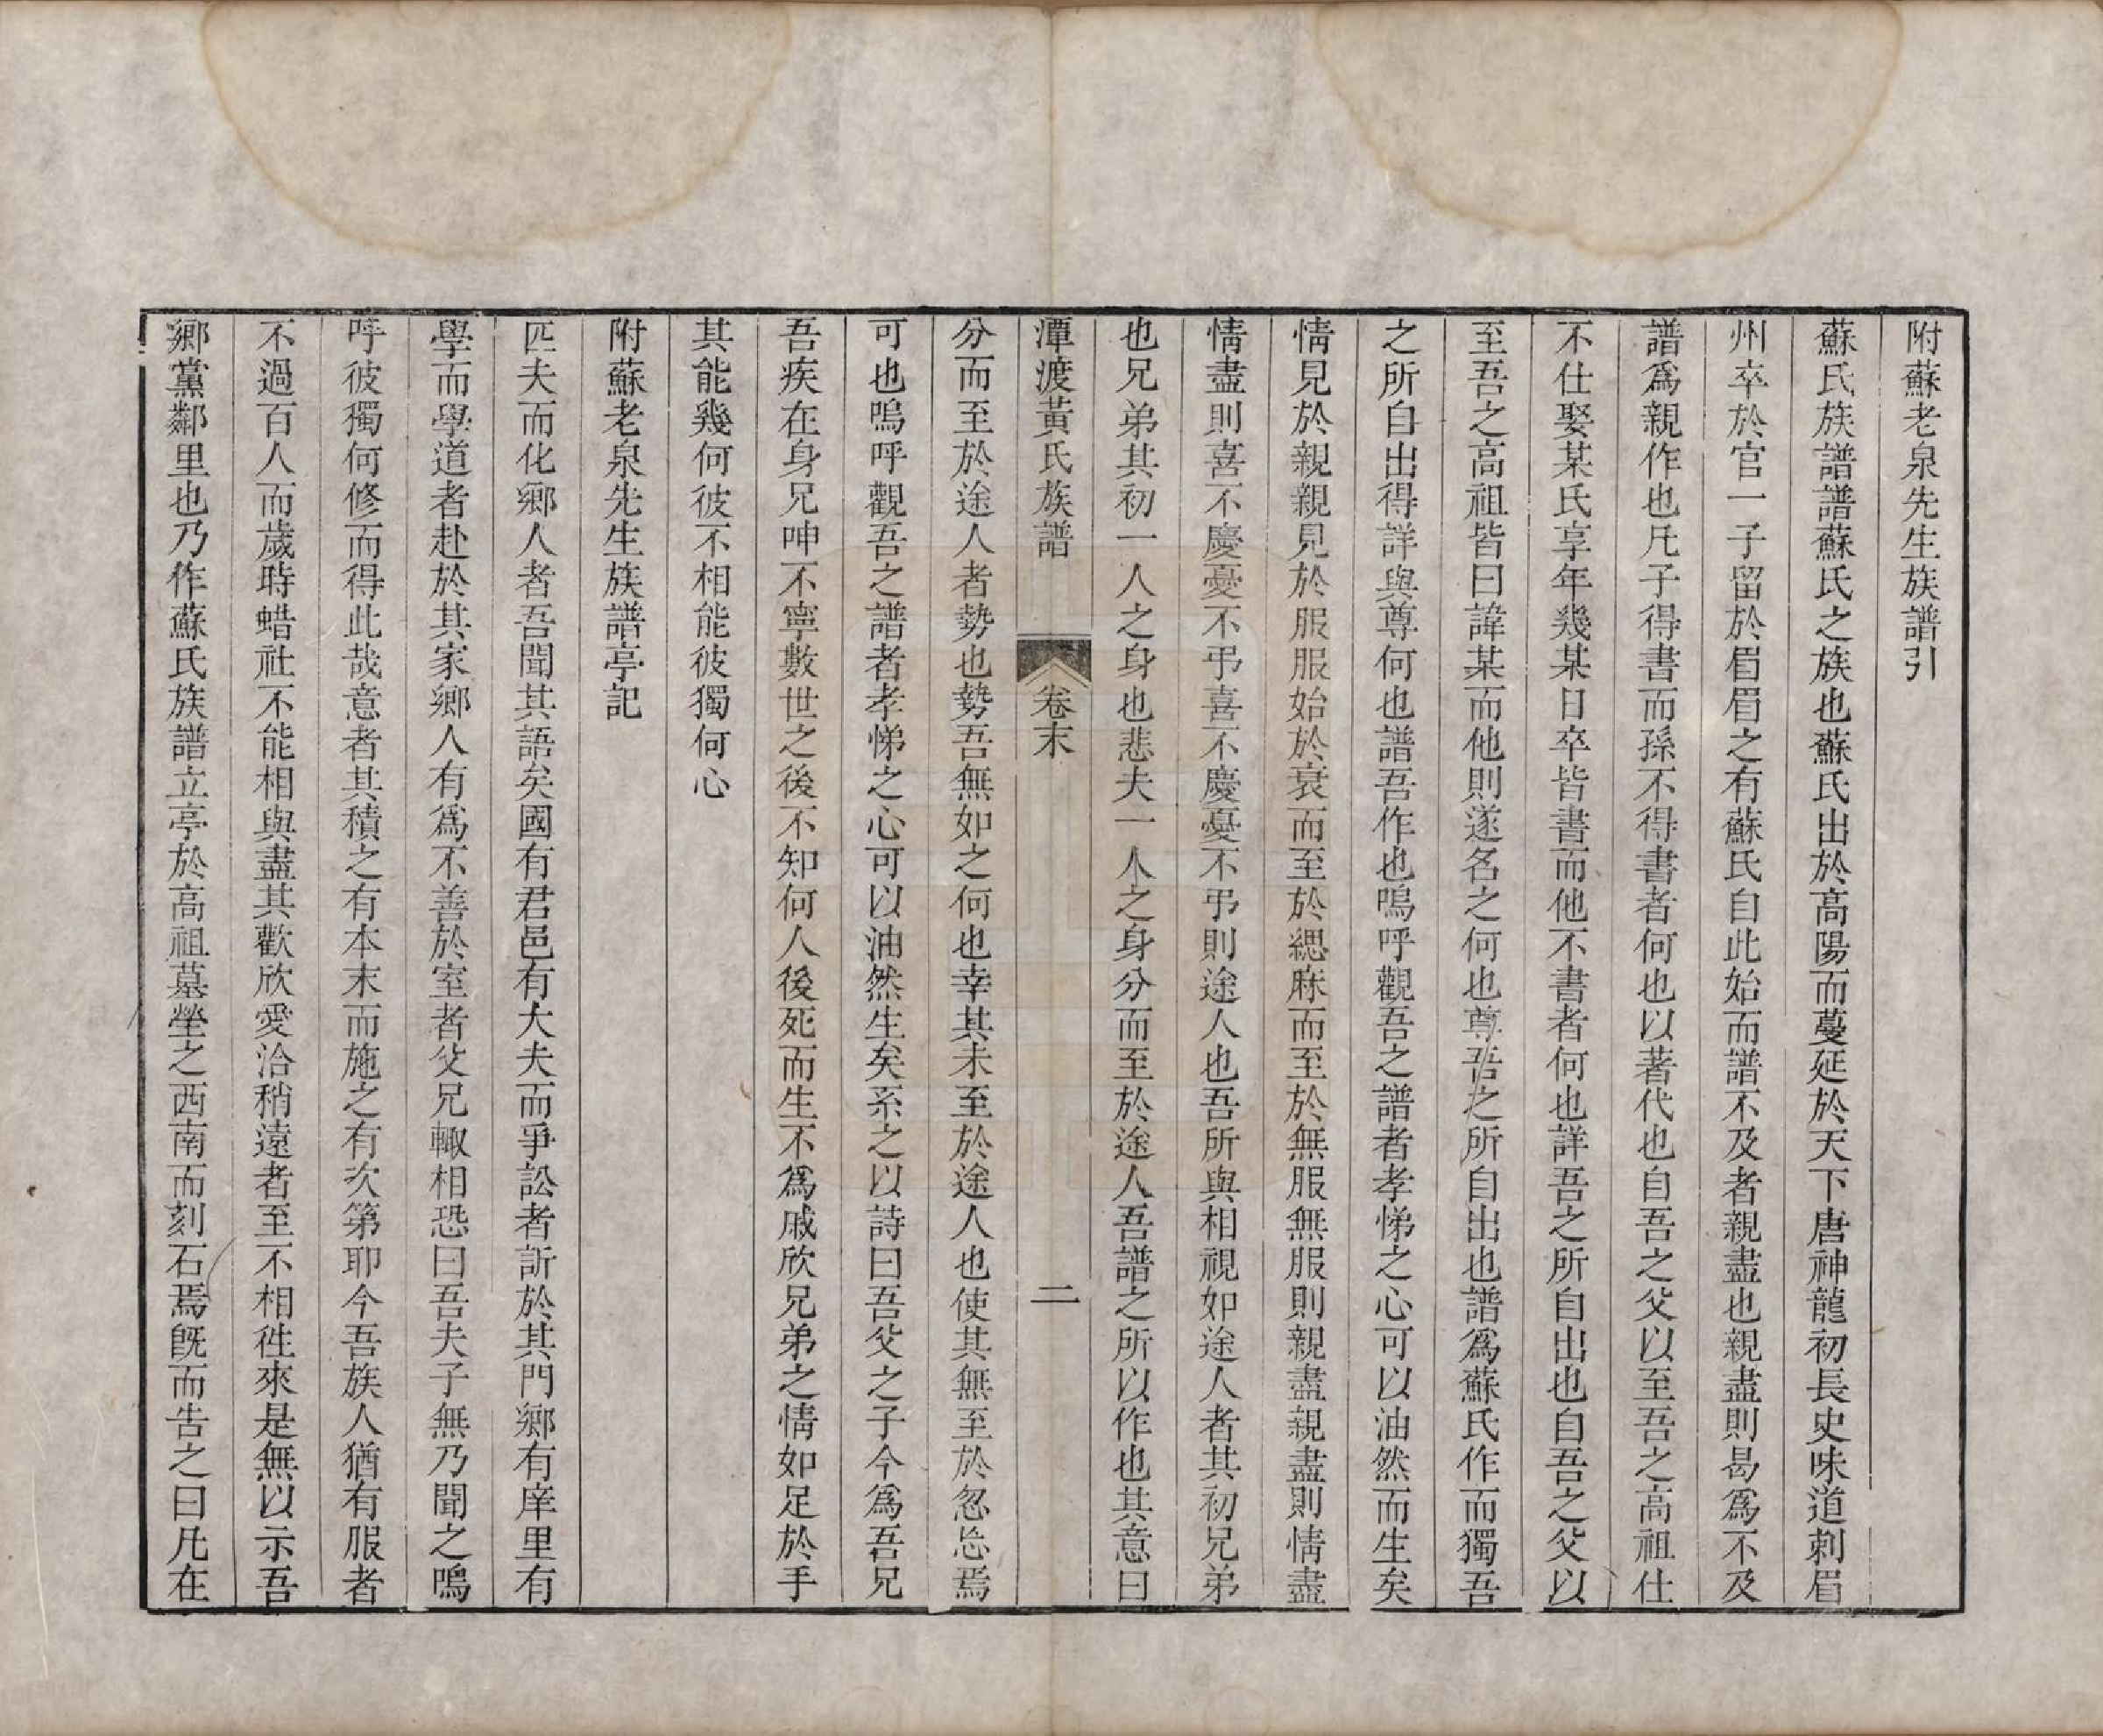 附蘇老泉先生族譜引
蘇氏族譜譜蘇氏之族也蘇氏出於高陽而蔓延於天下唐神龍初長史味道刺眉
州卒於官一子留於眉眉之有蘇氏自此始而譜不及者親盡也親盡則曷爲不及
譜爲親作也凡子得書而孫不得書者何也以著代也自吾之父以至吾之高祖仕
不仕娶某氏享年幾某日卒皆書而他不書者何也詳吾之所自出也自吾之父以
至吾之高祖皆曰諱某而他則遂名之何也尊吾之所自出也譜爲蘇氏作而獨吾
之所自出得詳與尊何也譜吾作也嗚呼觀吾之譜者孝悌之心可以油然而生矣
情見於親親見於服服始於衰而至於緦麻而至於無服無服則親盡親盡則情盡
情盡則喜不慶憂不弔喜不慶憂不弔則途人也吾所與相視如途人者其初兄弟
也兄弟其初一人之身也悲夫一人之身分而至於途人吾譜之所以作也其意曰
潭渡黃氏族譜 卷末 二
分而至於途人者勢也勢吾無如之何也幸其未至於途人也使其無至於忽忘焉
可也嗚呼觀吾之譜者孝悌之心可以油然生矣系之以詩曰吾父之子今爲吾兄
吾疾在身兄呻不寧數世之後不知何人後死而生不爲戚欣兄弟之情如足於手
其能幾何彼不相能彼獨何心
附蘇老泉先生族譜亭記
匹夫而化鄉人者吾聞其語矣國有君邑有大夫而爭訟者訴於其門鄉有庠里有
學而學道者赴於其家鄉人有爲不善於室者父兄輙相恐曰吾夫子無乃聞之嗚
呼彼獨何修而得此哉意者其積之有本末而施之有次第耶今吾族人猶有服者
不過百人而歲時蜡社不能相與盡其歡欣愛洽稍遠者至不相徃來是無以示吾
鄉黨鄰里也乃作蘇氏族譜立亭於高祖墓塋之西南而刻石焉旣而告之曰凡在